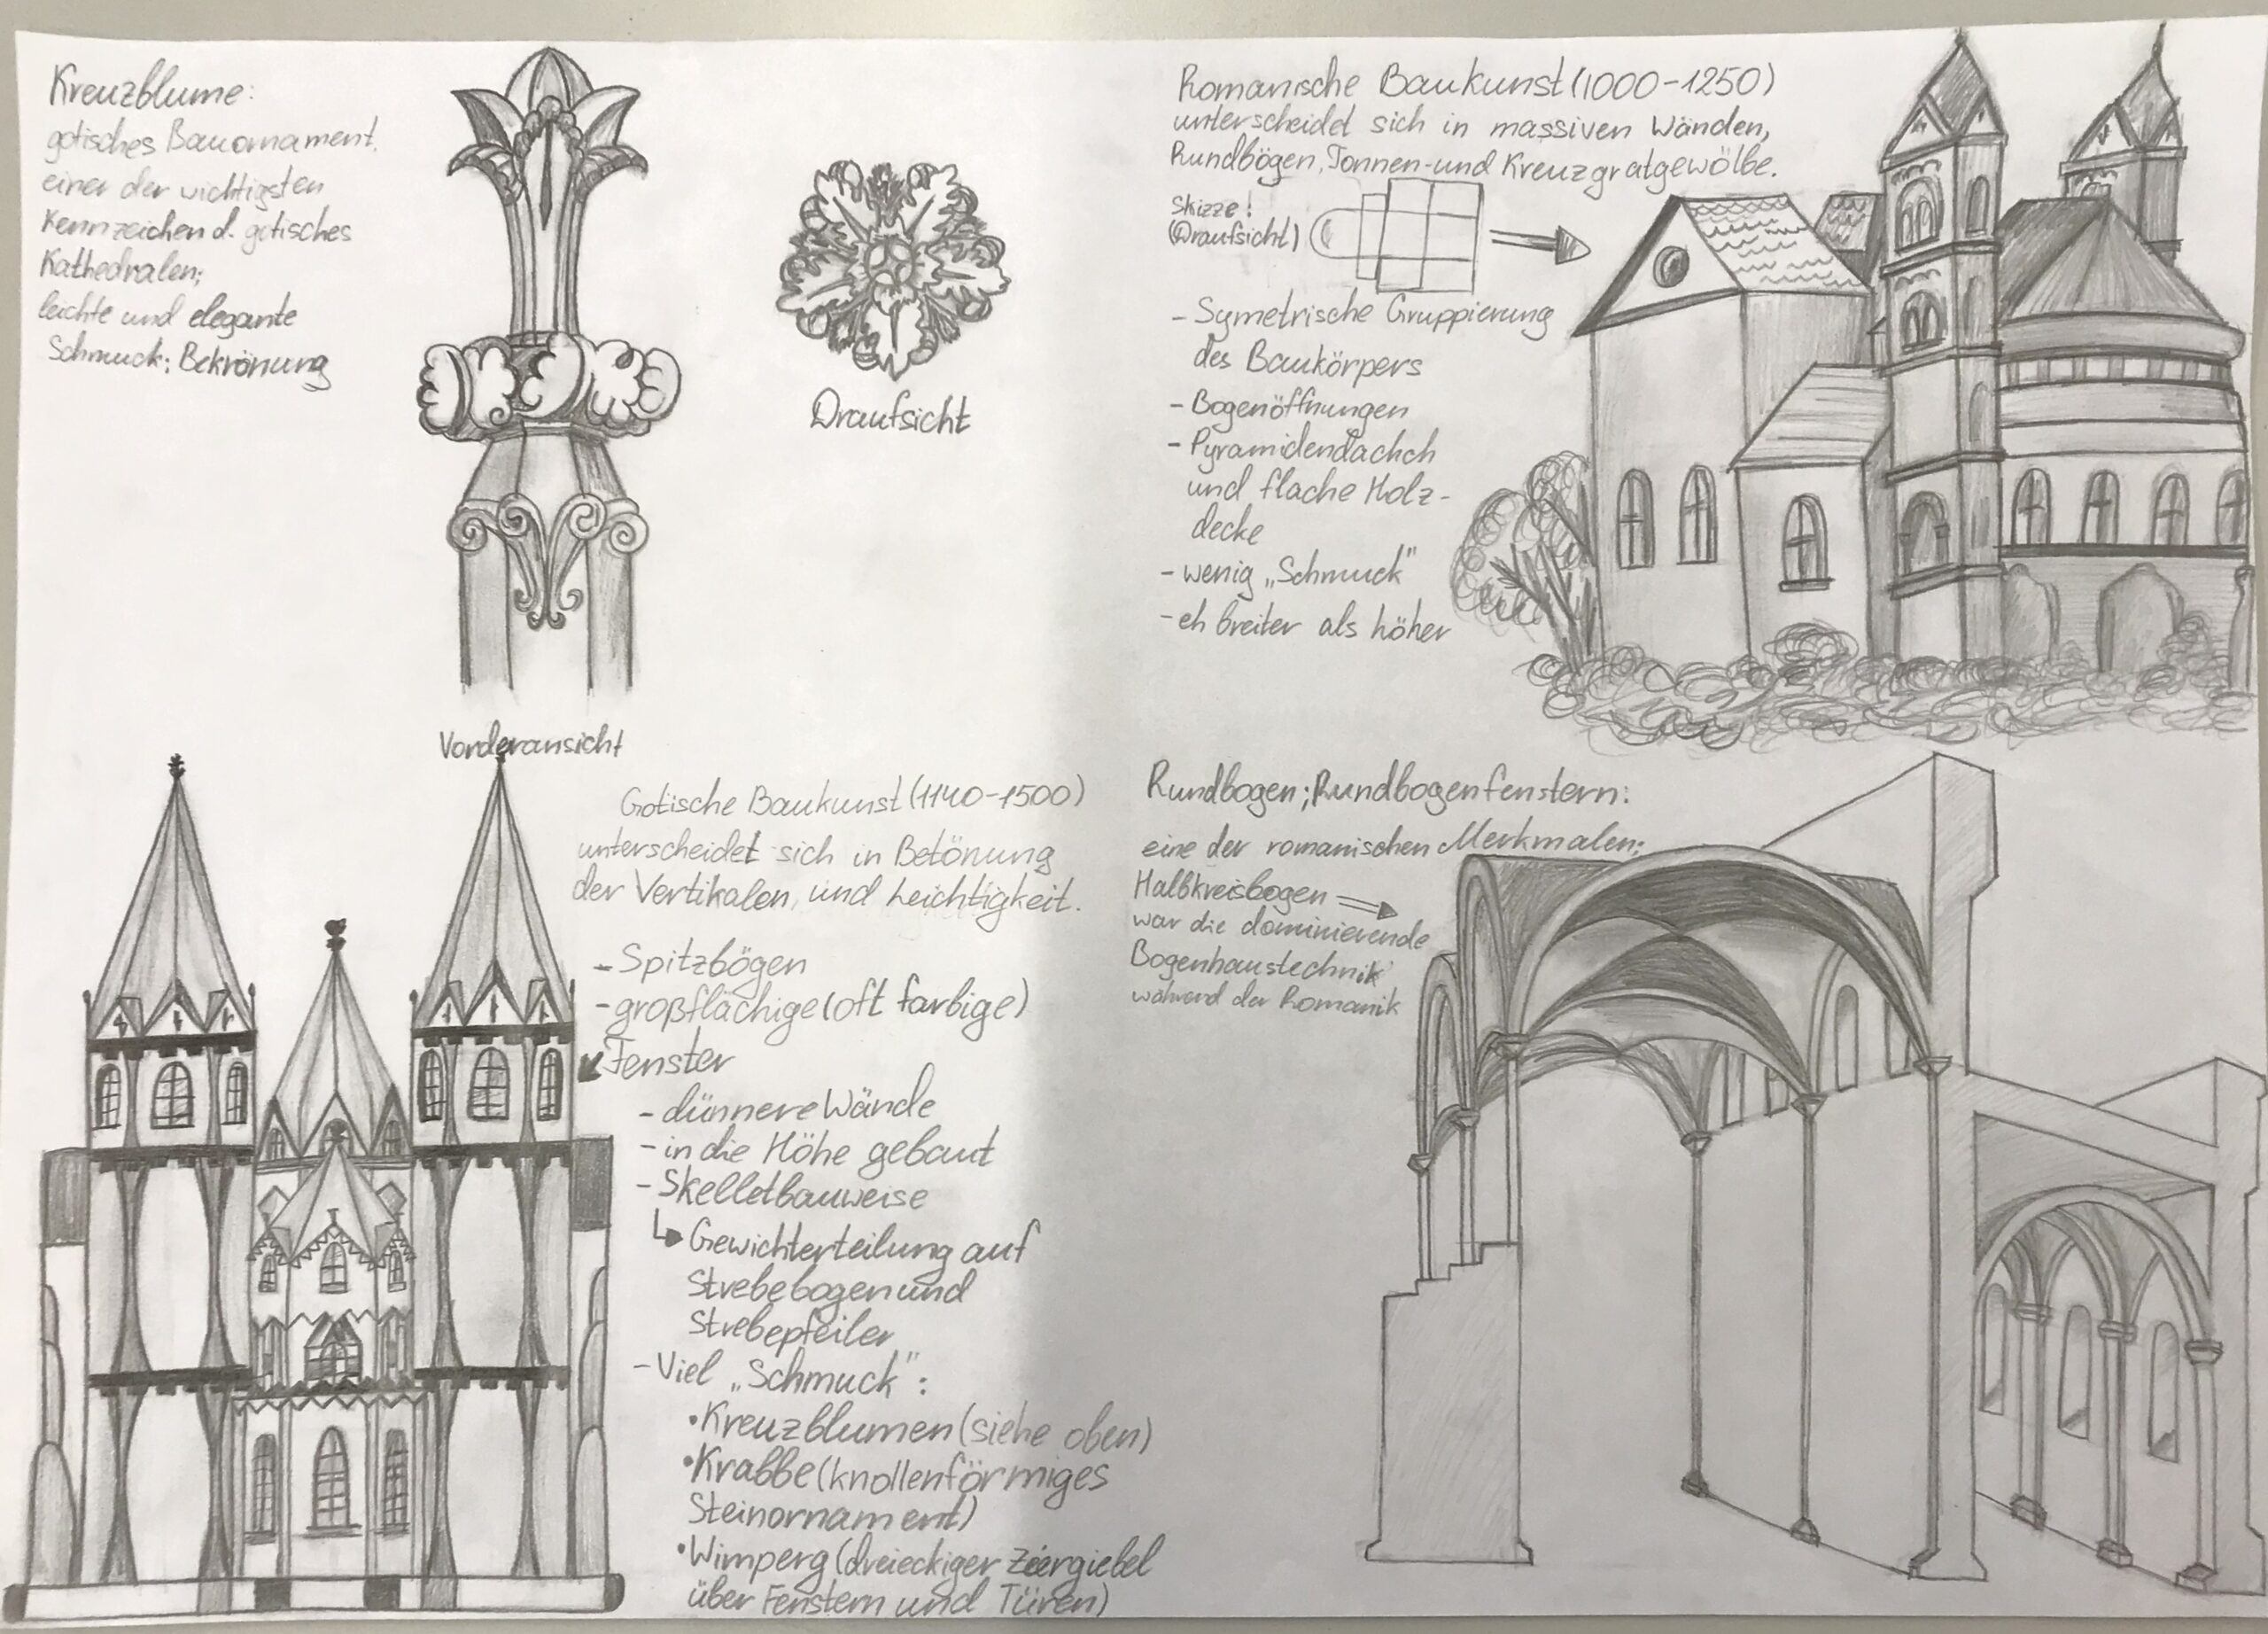 Kreuzblume:
gotisches Bauornament,
einer der wichtigsten
Kennzeichen d. gotisches
Kathedralen;
leichte und elegante
Schmuck; Bekrönung
Draufsicht
Vorderansicht
Romanische Baukunst (1000-1250)
unterscheidet sich in massiven Wänden,
Rundbögen, Tonnen- und Kreuzgratgewölbe.
Skizze:
(Draufsicht)
- Symetrische Gruppierung
des Baukörpers
- Bogenöffnungen
- Pyramidendachch
und flache Holz-
decke
- wenig „Schmuck"
- eh breiter als höher
Gotische Baukunst (1140-1500)
unterscheidet sich in Betönung
der Vertikalen, und Leichtigkeit.
- Spitzbögen
- großflächige (oft farbige)
Fenster
- dünnere Wände
- in die Höhe gebaut
- Skelletbauweise
↳ Gewichterteilung auf
Strebebogen und
Strebepfeiler
- Viel „Schmuck":
• Kreuzblumen (siehe oben)
• Krabbe (knollenförmiges
Steinornament)
• Wimperg (dreieckiger Ziergiebel
über Fenstern und Türen)
Rundbogen; Rundbogenfenstern:
eine der romanischen Merkmalen;
Halbkreisbogen ⇒
war die dominierende
Bogenhaustechnik
während der Romanik